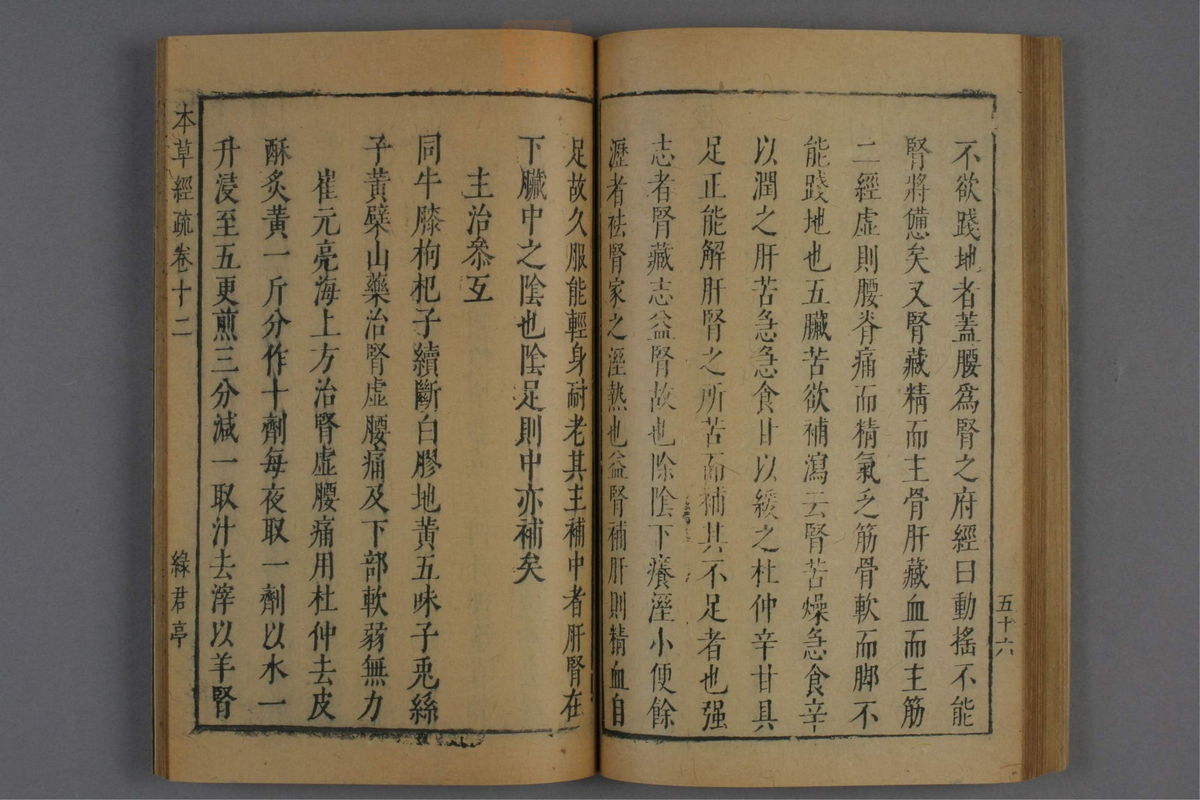 不欲踐地者蓋腰爲腎之府經曰動搖不能
腎將憊矣又腎藏精而主骨肝藏血而主筋
二經虛則腰脊痛而精氣乏筋骨軟而脚不
能踐地也五臟苦欲補瀉云腎苦燥急食辛
以潤之肝苦急急食甘以緩之杜仲辛甘具
足正能解肝腎之所苦而補其不足者也强
志者腎藏志益腎故也除陰下癢溼小便餘
瀝者祛腎家之溼熱也益腎補肝則精血自
五十六
足故久服能輕身耐老其主補中者肝腎在
下臟中之陰也陰足則中亦補矣
主治叅互
同牛膝枸杞子續斷白膠地黃五味子兎絲
子黃檗山藥治腎虛腰痛及下部軟弱無力
崔元亮海上方治腎虛腰痛用杜仲去皮
酥炙黃一斤分作十劑每夜取一劑以水一
升浸至五更煎三分減一取汁去滓以羊腎
本草經疏卷十二
綠君亭